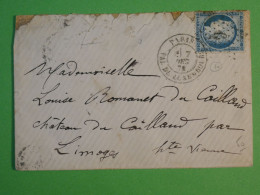 PARIS
Mademoiselle
Louise Romanet du Caillaud
château du Caillaud par
Limoges hte Vienne